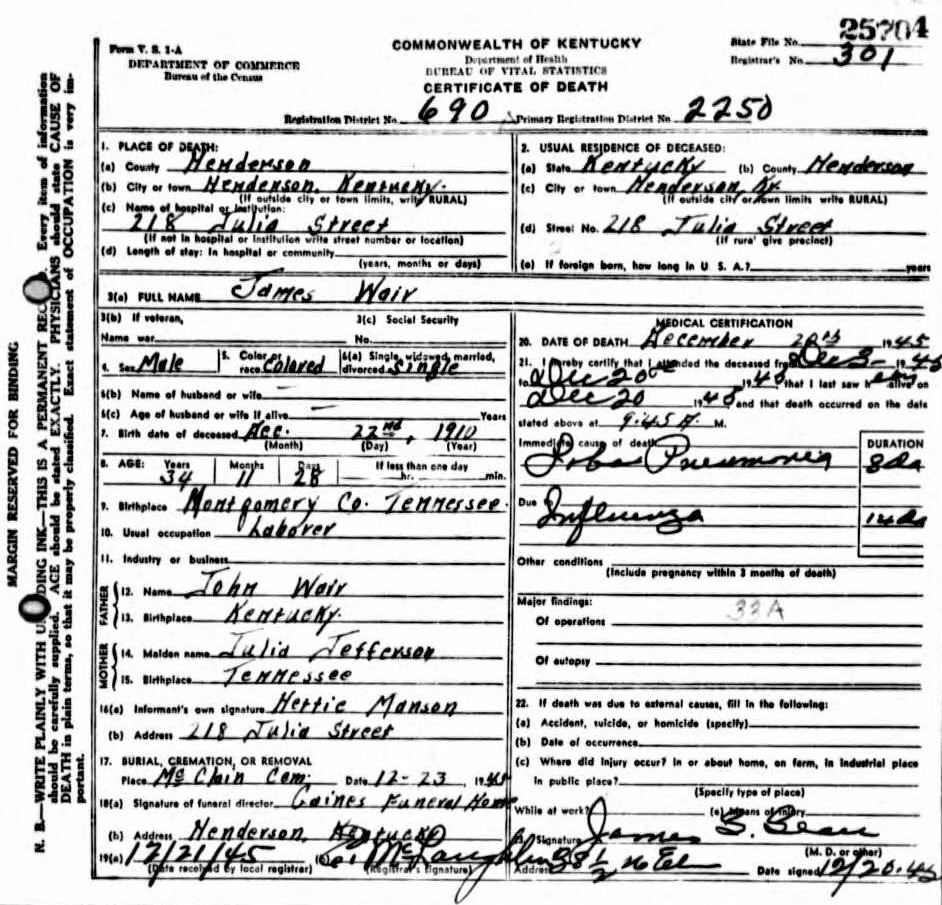 25704
Form V. S. 1-A
DEPARTMENT OF COMMERCE
Bureau of the Census
COMMONWEALTH OF KENTUCKY
Department of Health
BUREAU OF VITAL STATISTICS
CERTIFICATE OF DEATH
State File No.
Registrar's No. 301
Registration District No. 690 Primary Registration District No. 2250
MARGIN RESERVED FOR BINDING
N. B.—WRITE PLAINLY WITH UNFADING INK—THIS IS A PERMANENT RECORD. Every item of information
should be carefully supplied. AGE should be stated EXACTLY. PHYSICIANS should state CAUSE OF
DEATH in plain terms, so that it may be properly classified. Exact statement of OCCUPATION is very im-
portant.
1. PLACE OF DEATH:
(a) County Henderson
(b) City or town Henderson, Kentucky.
(If outside city or town limits, write RURAL)
(c) Name of hospital or institution:
218 Julia Street
(If not in hospital or institution write street number or location)
(d) Length of stay: In hospital or community
(years, months or days)
2. USUAL RESIDENCE OF DECEASED:
(a) State Kentucky (b) County Henderson
(c) City or town Henderson, Ky.
(If outside city or town limits write RURAL)
(d) Street No. 218 Julia Street
(If rural give precinct)
(e) If foreign born, how long in U. S. A.? years
3(a) FULL NAME James Wair
3(b) If veteran,
Name war
3(c) Social Security
No.
4. Sex Male 5. Color or race Colored 6(a) Single, widowed, married, divorced Single
6(b) Name of husband or wife
6(c) Age of husband or wife if alive Years
7. Birth date of deceased Dec. 22nd, 1910
(Month) (Day) (Year)
8. AGE: Years 34 Months 11 Days 28 If less than one day hr. min.
9. Birthplace Montgomery Co. Tennessee.
10. Usual occupation Laborer
11. Industry or business
FATHER
12. Name John Wair
13. Birthplace Kentucky.
MOTHER
14. Maiden name Julia Jefferson
15. Birthplace Tennessee
16(a) Informant's own signature Hettie Manson
(b) Address 218 Julia Street
17. BURIAL, CREMATION, OR REMOVAL
Place Mc Clain Cem. Date 12-23, 1945
18(a) Signature of funeral director Gaines Funeral Home
(b) Address Henderson, Kentucky
19(a) 12/21/45 (b) McLaughlin
(Date received by local registrar) (Registrar's signature)
MEDICAL CERTIFICATION
20. DATE OF DEATH December 20th 1945
21. I hereby certify that I attended the deceased from Dec 3- 1945
to Dec 20 1945, that I last saw him alive on
Dec 20 1945 and that death occurred on the date
stated above at 9:45 A. M.
Immediate cause of death DURATION
Lobar Pneumonia 8 Da
Due to
Influenza 14 Da
Other conditions
(Include pregnancy within 3 months of death)
Major findings:
33A
Of operations
Of autopsy
22. If death was due to external causes, fill in the following:
(a) Accident, suicide, or homicide (specify)
(b) Date of occurrence
(c) Where did injury occur? In or about home, on farm, in industrial place
in public place?
(Specify type of place)
While at work? (e) Means of injury
23. Signature James S. Bean
(M. D. or other)
Address Date signed 12/20.45